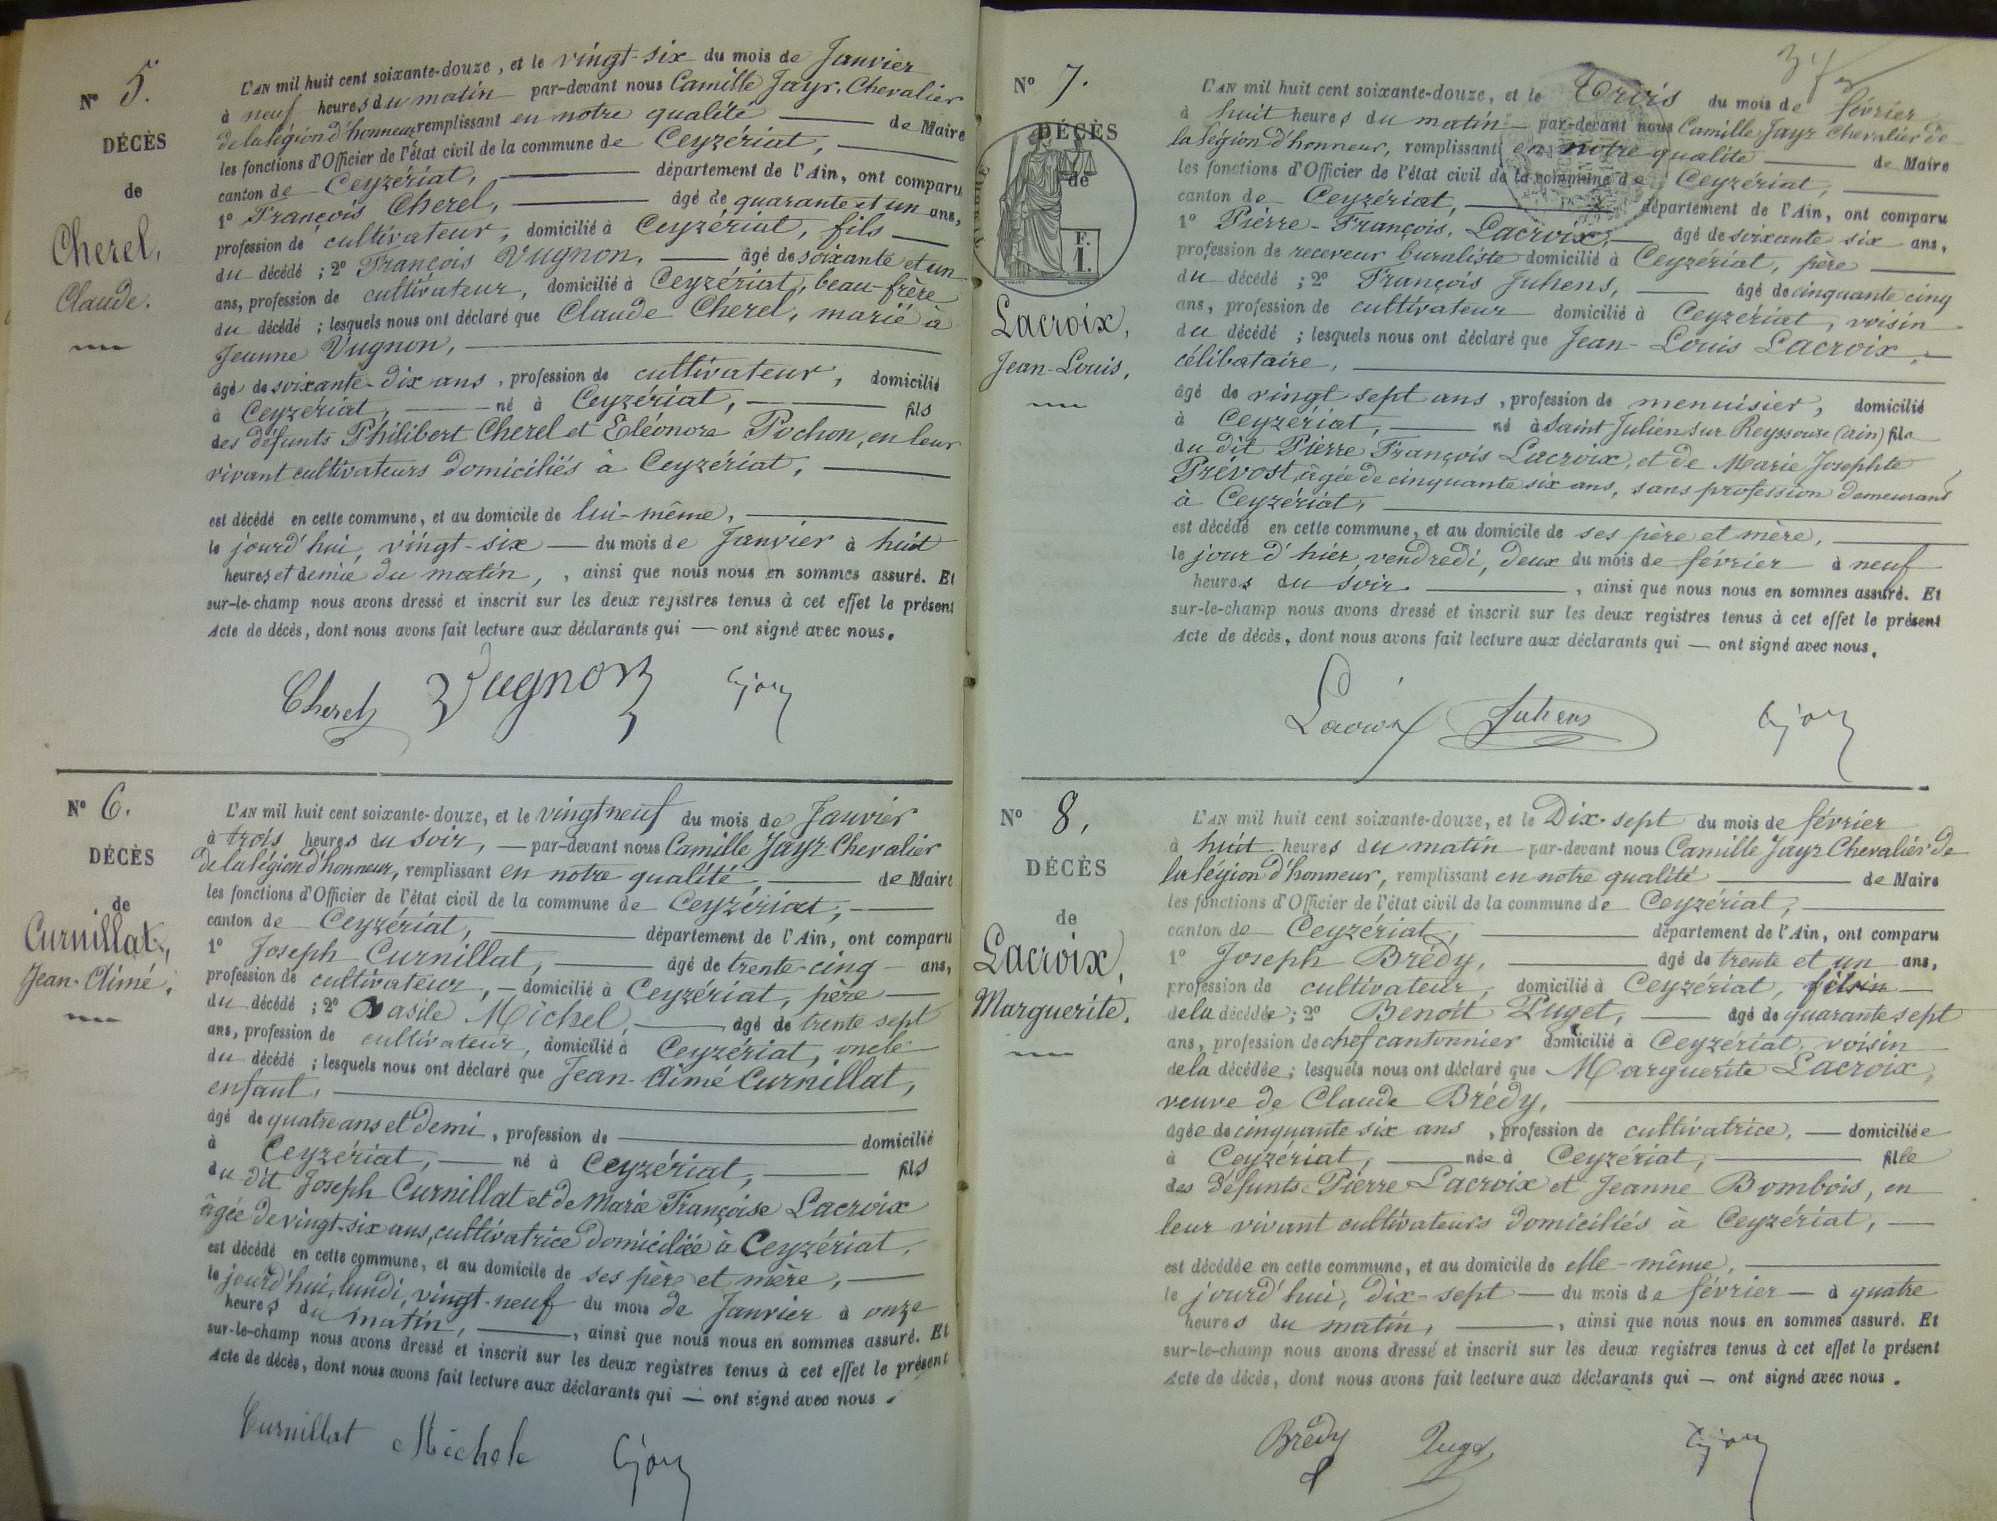 N° 5.
DÉCÈS
de
Cherel,
Claude.
L'AN mil huit cent soixante-douze, et le vingt-six du mois de Janvier
à neuf heures du matin par-devant nous Camille Jayr, Chevalier
de la légion d'honneur, remplissant en notre qualité de Maire
les fonctions d'Officier de l'état civil de la commune de Ceyzériat,
canton de Ceyzériat, département de l'Ain, ont comparu
1° François Cherel, âgé de quarante et un ans,
profession de cultivateur, domicilié à Ceyzériat, fils
du décédé ; 2° François Vugnon, âgé de soixante et un
ans, profession de cultivateur, domicilié à Ceyzériat, beau-frère
du décédé ; lesquels nous ont déclaré que Claude Cherel, marié à
Jeanne Vugnon,
âgé de soixante-dix ans, profession de cultivateur, domicilié
à Ceyzériat, né à Ceyzériat, fils
des défunts Philibert Cherel et Eléonore Pochon, en leur
vivant cultivateurs domiciliés à Ceyzériat,
est décédé en cette commune, et au domicile de lui-même,
le jourd'hui, vingt-six du mois de Janvier à huit
heures et demie du matin, , ainsi que nous nous en sommes assuré. Et
sur-le-champ nous avons dressé et inscrit sur les deux registres tenus à cet effet le présent
Acte de décès, dont nous avons fait lecture aux déclarants qui — ont signé avec nous.
Cherel Vugnon
N° 6.
DÉCÈS
de
Curnillat,
Jean-Aimé.
L'AN mil huit cent soixante-douze, et le vingt neuf du mois de Janvier
à trois heures du soir, — par-devant nous Camille Jayr Chevalier
de la légion d'honneur, remplissant en notre qualité, de Maire
les fonctions d'Officier de l'état civil de la commune de Ceyzériat,
canton de Ceyzériat, département de l'Ain, ont comparu
1° Joseph Curnillat, âgé de trente-cinq ans,
profession de cultivateur, domicilié à Ceyzériat, père
du décédé ; 2° Basile Michel, âgé de trente sept
ans, profession de cultivateur, domicilié à Ceyzériat, oncle
du décédé ; lesquels nous ont déclaré que Jean-Aimé Curnillat,
enfant,
âgé de quatre ans et demi, profession de domicilié
à Ceyzériat, né à Ceyzériat, fils
du dit Joseph Curnillat et de Marie Françoise Lacroix
âgée de vingt-six ans, cultivatrice domiciliée à Ceyzériat,
est décédé en cette commune, et au domicile de ses père et mère,
le jourd'hui, lundi, vingt-neuf du mois de Janvier à onze
heures du matin, , ainsi que nous nous en sommes assuré. Et
sur-le-champ nous avons dressé et inscrit sur les deux registres tenus à cet effet le présent
Acte de décès, dont nous avons fait lecture aux déclarants qui — ont signé avec nous.
Curnillat Michele
N° 7.
DÉCÈS
de
F.
I.
Lacroix,
Jean-Louis,
L'AN mil huit cent soixante-douze, et le Trois du mois de février
à huit heures du matin par-devant nous Camille Jayr Chevalier de
la légion d'honneur, remplissant en notre qualité de Maire
les fonctions d'Officier de l'état civil de la commune de Ceyzériat,
canton de Ceyzériat, département de l'Ain, ont comparu
1° Pierre-François, Lacroix, âgé de soixante six ans,
profession de receveur buraliste domicilié à Ceyzériat, père
du décédé ; 2° François Juhens, âgé de cinquante cinq
ans, profession de cultivateur domicilié à Ceyzériat, voisin
du décédé ; lesquels nous ont déclaré que Jean-Louis Lacroix,
célibataire,
âgé de vingt sept ans, profession de menuisier, domicilié
à Ceyzériat, né à Saint Julien sur Reyssouze (Ain) fils
du dit Pierre François Lacroix, et de Marie Josephte
Prévost, âgée de cinquante six ans, sans profession demeurant
à Ceyzériat,
est décédé en cette commune, et au domicile de ses père et mère,
le jour d'hier, vendredi, deux du mois de février à neuf
heures du soir , ainsi que nous nous en sommes assuré. Et
sur-le-champ nous avons dressé et inscrit sur les deux registres tenus à cet effet le présent
Acte de décès, dont nous avons fait lecture aux déclarants qui — ont signé avec nous.
Lacroix Juhens
N° 8,
DÉCÈS
de
Lacroix,
Marguerite.
L'AN mil huit cent soixante-douze, et le Dix-sept du mois de février
à huit heures du matin par-devant nous Camille Jayr Chevalier de
la légion d'honneur, remplissant en notre qualité de Maire
les fonctions d'Officier de l'état civil de la commune de Ceyzériat,
canton de Ceyzériat, département de l'Ain, ont comparu
1° Joseph Brédy, âgé de trente et un ans,
profession de cultivateur, domicilié à Ceyzériat,
de la décédée ; 2° Benoît Puget, âgé de quarante sept
ans, profession de chef cantonnier domicilié à Ceyzériat, voisin
de la décédée ; lesquels nous ont déclaré que Marguerite Lacroix,
veuve de Claude Brédy,
âgée de cinquante six ans, profession de cultivatrice, — domiciliée
à Ceyzériat, née à Ceyzériat, fille
des défunts Pierre Lacroix et Jeanne Bombois, en
leur vivant cultivateurs domiciliés à Ceyzériat,
est décédée en cette commune, et au domicile de elle-même,
le jourd'hui, dix-sept — du mois de février — à quatre
heures du matin, , ainsi que nous nous en sommes assuré. Et
sur-le-champ nous avons dressé et inscrit sur les deux registres tenus à cet effet le présent
Acte de décès, dont nous avons fait lecture aux déclarants qui — ont signé avec nous.
Brédy Puget